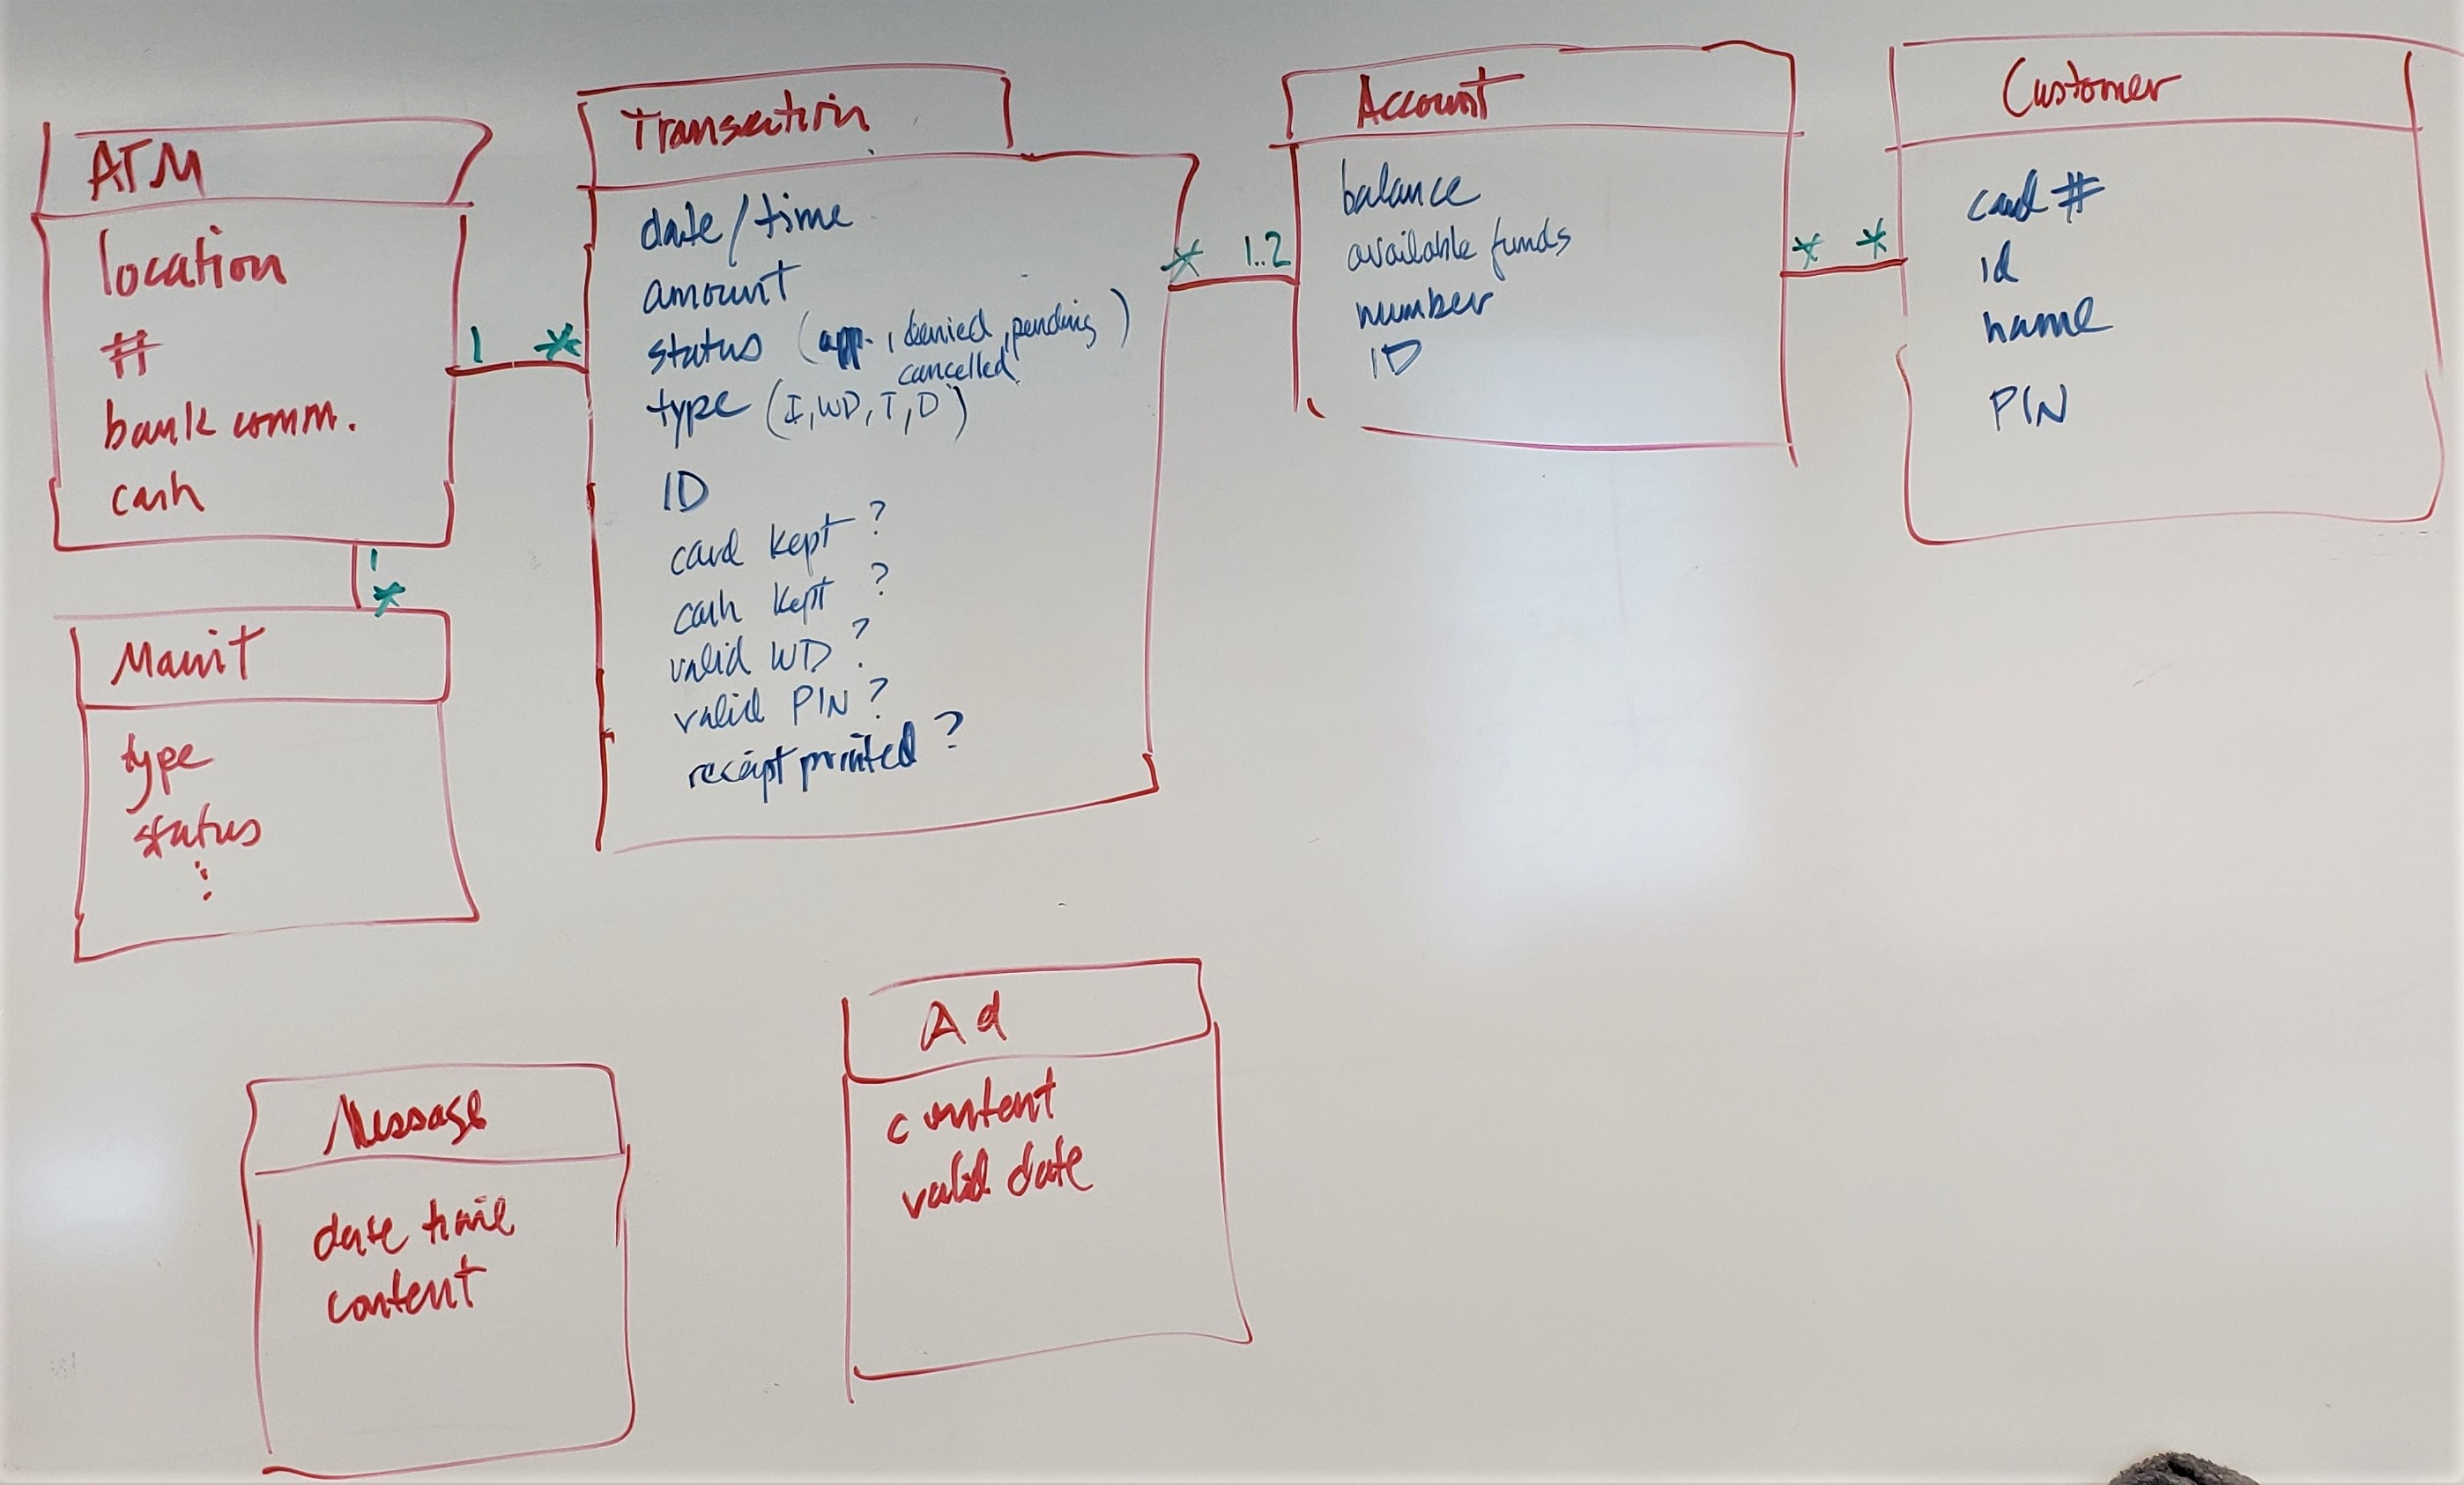 ATM
location
#
bank comm.
cash
1 *
1
*
Maint
type
status
⋮
Transaction
date/time
amount
status (app., denied, pending)
cancelled
type (I, WD, T, D)
ID
card kept ?
cash kept ?
valid WD ?
valid PIN ?
receipt printed ?
* 1..2
Account
balance
available funds
number
ID
* *
Customer
card #
id
name
PIN
Message
date time
content
Ad
content
valid date